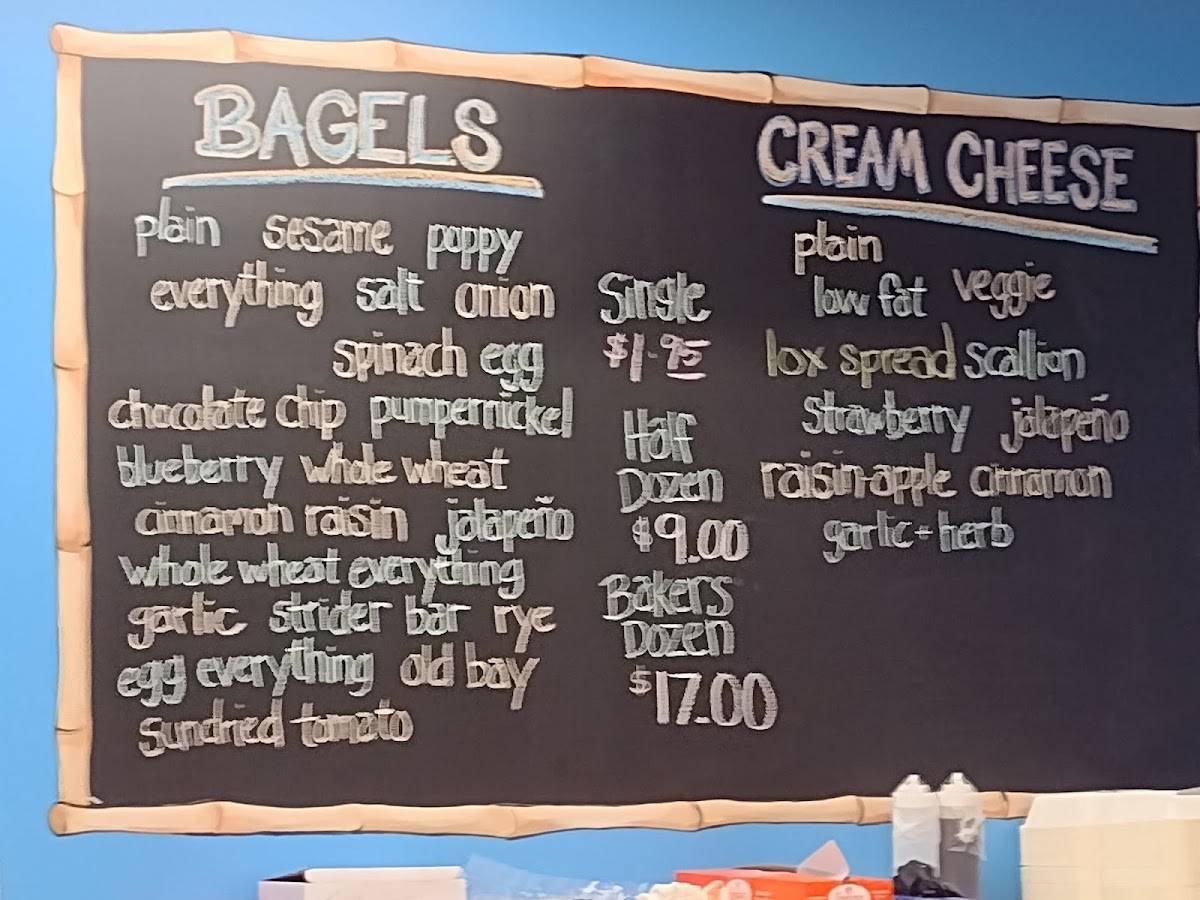 BAGELS
plain sesame poppy
everything salt onion
spinach egg
chocolate chip pumpernickel
blueberry whole wheat
cinnamon raisin jalapeño
whole wheat everything
garlic strider bar rye
egg everything old bay
sundried tomato
Single
$1.95
Half
Dozen
$9.00
Bakers
Dozen
$17.00
CREAM CHEESE
plain
low fat veggie
lox spread scallion
strawberry jalapeño
raisin-apple cinnamon
garlic + herb